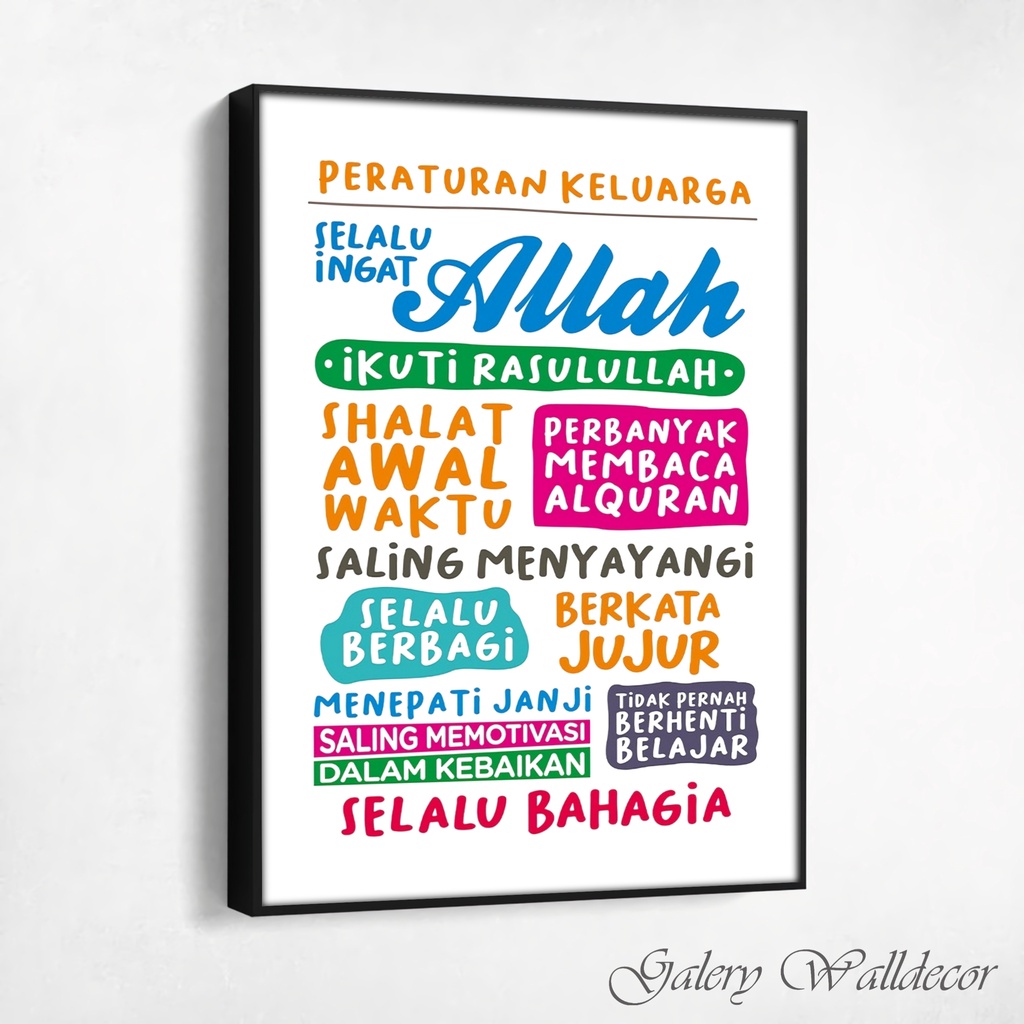 PERATURAN KELUARGA
SELALU
iNGAT
Allah
•iKUTi RASULULLAH•
SHALAT
AWAL
WAKTU
PERBANYAK
MEMBACA
ALQURAN
SALiNG MENYAYANGi
SELALU
BERBAGi
BERKATA
JUJUR
MENEPATi JANJi
SALING MEMOTIVASI
DALAM KEBAIKAN
TiDAK PERNAH
BERHENTi
BELAJAR
SELALU BAHAGiA
Galery Walldecor